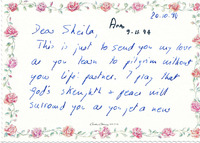 20.10.94
Dear Sheila,
9-11-94
This is just to send you my love
as you learn to pilgrim without
your life partner. I pray that
God's strength + peace will
surround you as you get a new